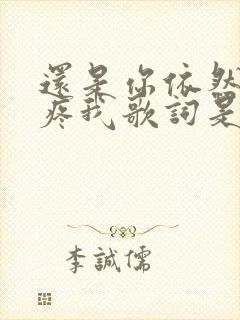 還是你依然
疼我歌詞是
李誠儒